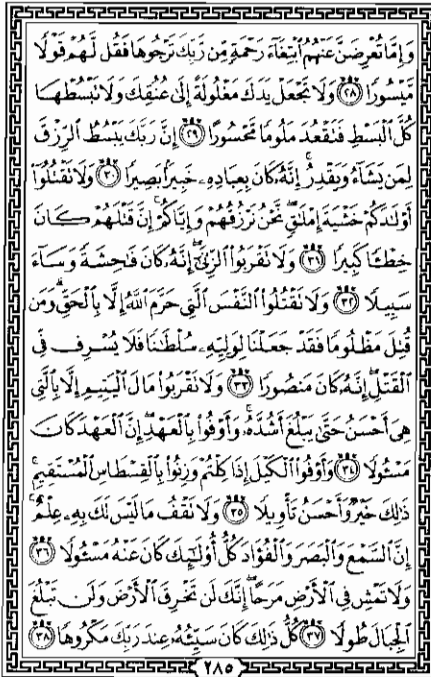 وَإِمَّا تُعْرِضَنَّ عَنْهُمُ ٱبْتِغَآءَ رَحْمَةٍ مِّن رَّبِّكَ تَرْجُوهَا فَقُل لَّهُمْ قَوْلًا
مَّيْسُورًا ٢٨ وَلَا تَجْعَلْ يَدَكَ مَغْلُولَةً إِلَىٰ عُنُقِكَ وَلَا تَبْسُطْهَا
كُلَّ ٱلْبَسْطِ فَتَقْعُدَ مَلُومًا مَّحْسُورًا ٢٩ إِنَّ رَبَّكَ يَبْسُطُ ٱلرِّزْقَ
لِمَن يَشَآءُ وَيَقْدِرُ إِنَّهُۥ كَانَ بِعِبَادِهِۦ خَبِيرًۢا بَصِيرًا ٣٠ وَلَا تَقْتُلُوٓا۟
أَوْلَـٰدَكُمْ خَشْيَةَ إِمْلَـٰقٍ نَّحْنُ نَرْزُقُهُمْ وَإِيَّاكُمْ إِنَّ قَتْلَهُمْ كَانَ
خِطْـًٔا كَبِيرًا ٣١ وَلَا تَقْرَبُوا۟ ٱلزِّنَىٰٓ إِنَّهُۥ كَانَ فَـٰحِشَةً وَسَآءَ
سَبِيلًا ٣٢ وَلَا تَقْتُلُوا۟ ٱلنَّفْسَ ٱلَّتِى حَرَّمَ ٱللَّهُ إِلَّا بِٱلْحَقِّ وَمَن
قُتِلَ مَظْلُومًا فَقَدْ جَعَلْنَا لِوَلِيِّهِۦ سُلْطَـٰنًا فَلَا يُسْرِف فِّى
ٱلْقَتْلِ إِنَّهُۥ كَانَ مَنصُورًا ٣٣ وَلَا تَقْرَبُوا۟ مَالَ ٱلْيَتِيمِ إِلَّا بِٱلَّتِى
هِىَ أَحْسَنُ حَتَّىٰ يَبْلُغَ أَشُدَّهُۥ وَأَوْفُوا۟ بِٱلْعَهْدِ إِنَّ ٱلْعَهْدَ كَانَ
مَسْـُٔولًا ٣٤ وَأَوْفُوا۟ ٱلْكَيْلَ إِذَا كِلْتُمْ وَزِنُوا۟ بِٱلْقِسْطَاسِ ٱلْمُسْتَقِيمِ
ذَٰلِكَ خَيْرٌ وَأَحْسَنُ تَأْوِيلًا ٣٥ وَلَا تَقْفُ مَا لَيْسَ لَكَ بِهِۦ عِلْمٌ
إِنَّ ٱلسَّمْعَ وَٱلْبَصَرَ وَٱلْفُؤَادَ كُلُّ أُو۟لَـٰٓئِكَ كَانَ عَنْهُ مَسْـُٔولًا ٣٦
وَلَا تَمْشِ فِى ٱلْأَرْضِ مَرَحًا إِنَّكَ لَن تَخْرِقَ ٱلْأَرْضَ وَلَن تَبْلُغَ
ٱلْجِبَالَ طُولًا ٣٧ كُلُّ ذَٰلِكَ كَانَ سَيِّئُهُۥ عِندَ رَبِّكَ مَكْرُوهًا ٣٨
٢٨٥